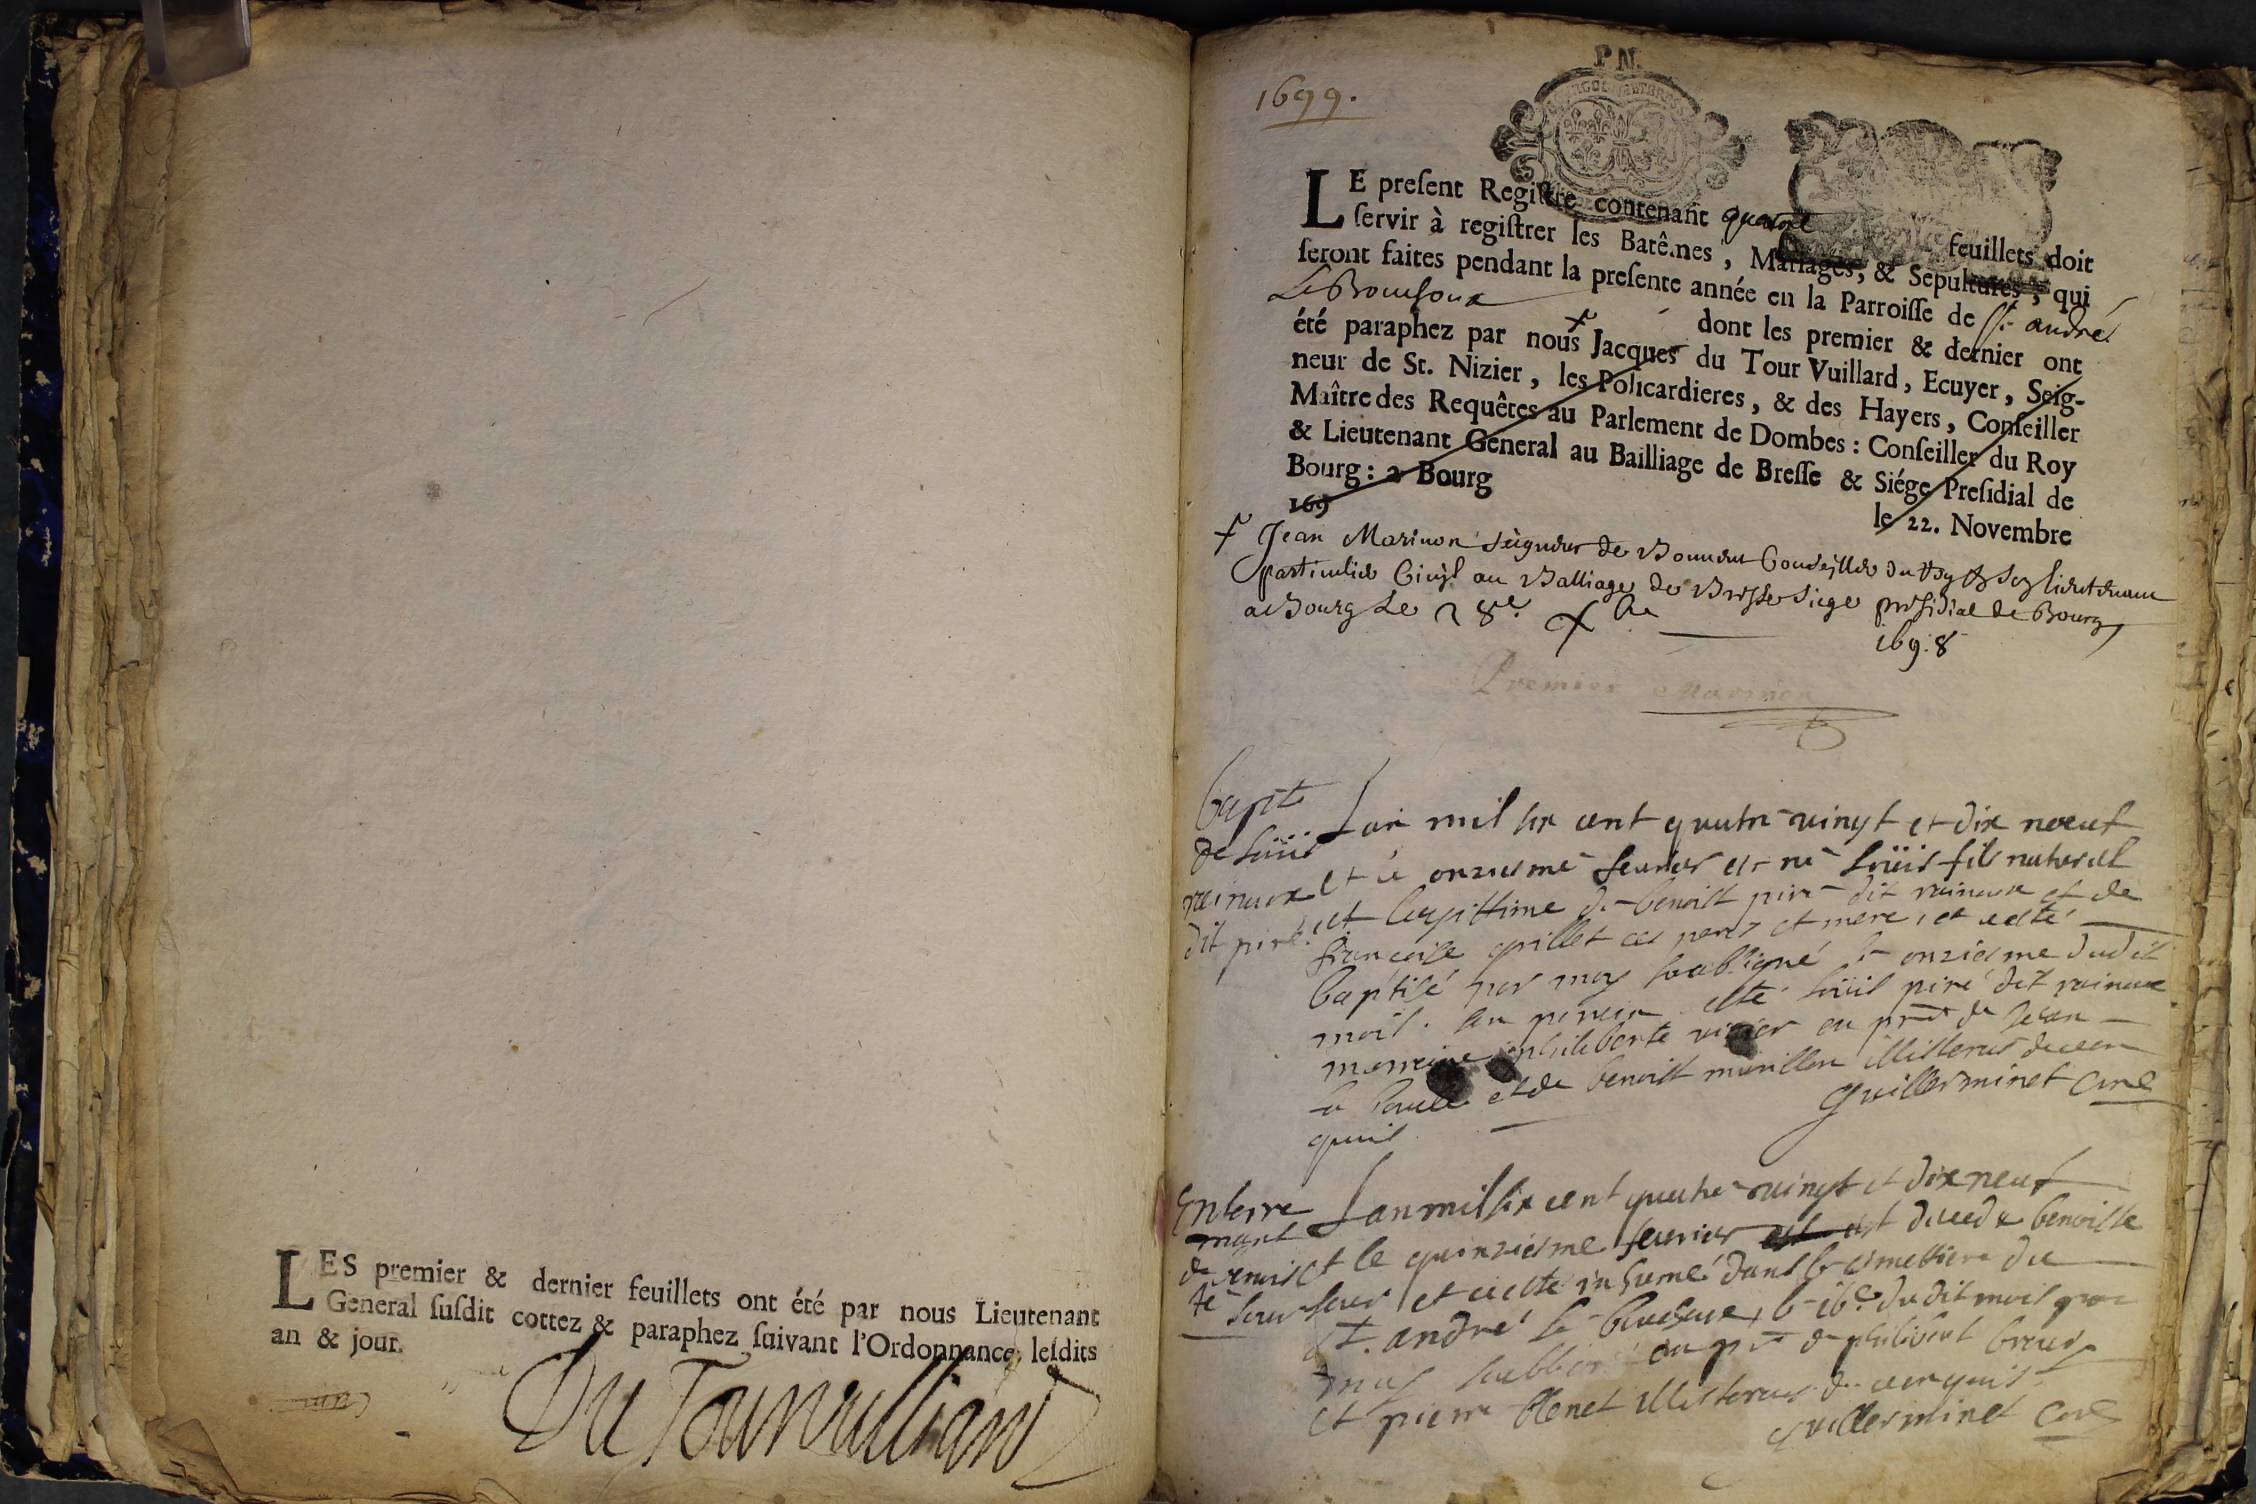 LES premier & dernier feuillets ont été par nous Lieutenant
General susdit cottez & paraphez suivant l'Ordonnance, lesdits
an & jour.
Du Tour Vuilliard
1699.
P N.
LE present Registre contenant quatre feuillets doit
servir à registrer les Batêmes, Mariages, & Sepultures, qui
seront faites pendant la presente année en la Parroisse de St. andré
Le Bouchoux dont les premier & dernier ont
été paraphez par nous Jacques du Tour Vuillard, Ecuyer, Seig-
neur de St. Nizier, les Policardieres, & des Hayers, Conseiller
Maître des Requêtes au Parlement de Dombes : Conseiller du Roy
& Lieutenant General au Bailliage de Bresse & Siége Presidial de
Bourg : a Bourg le 22. Novembre
169
Jean Marinon seigneur de Conseiller du Roy lieutenant
particulier Civil au Balliage de Bresse Siege presidial de Bourg
a Bourg Le 28e Xbre 1698
Premier Marinon
bapt
de Loüis
rainaux
dit piré
Lan mil six cent quatre vingt et dix noeuf
et le onziesme feuvrier est né Loüis fils naturel
et legittime de benoist piré dit rainaux et de
francoise grillet ces peres et mere, et a esté
baptisé par moy soubsigné le onziesme dudit
mois. son perein a esté Loüis piré dit rainaux
marreine philiberte en pnce de Jean
et de benoist morillon illisterés de ce en
quis
Guillerminet curé
Enterre
mant
de benoi
te
Lan mil six cent quatre vingt et dix neuf
et le quinziesme feuvrier est decedé benoiste
et a esté inhumé dans le simettiere de
St. andré le bouchoux, le 16e du dit mois par
moy soubsigné en pnce de philibert
et pierre illisterés de ce enquis
Guillerminet curé